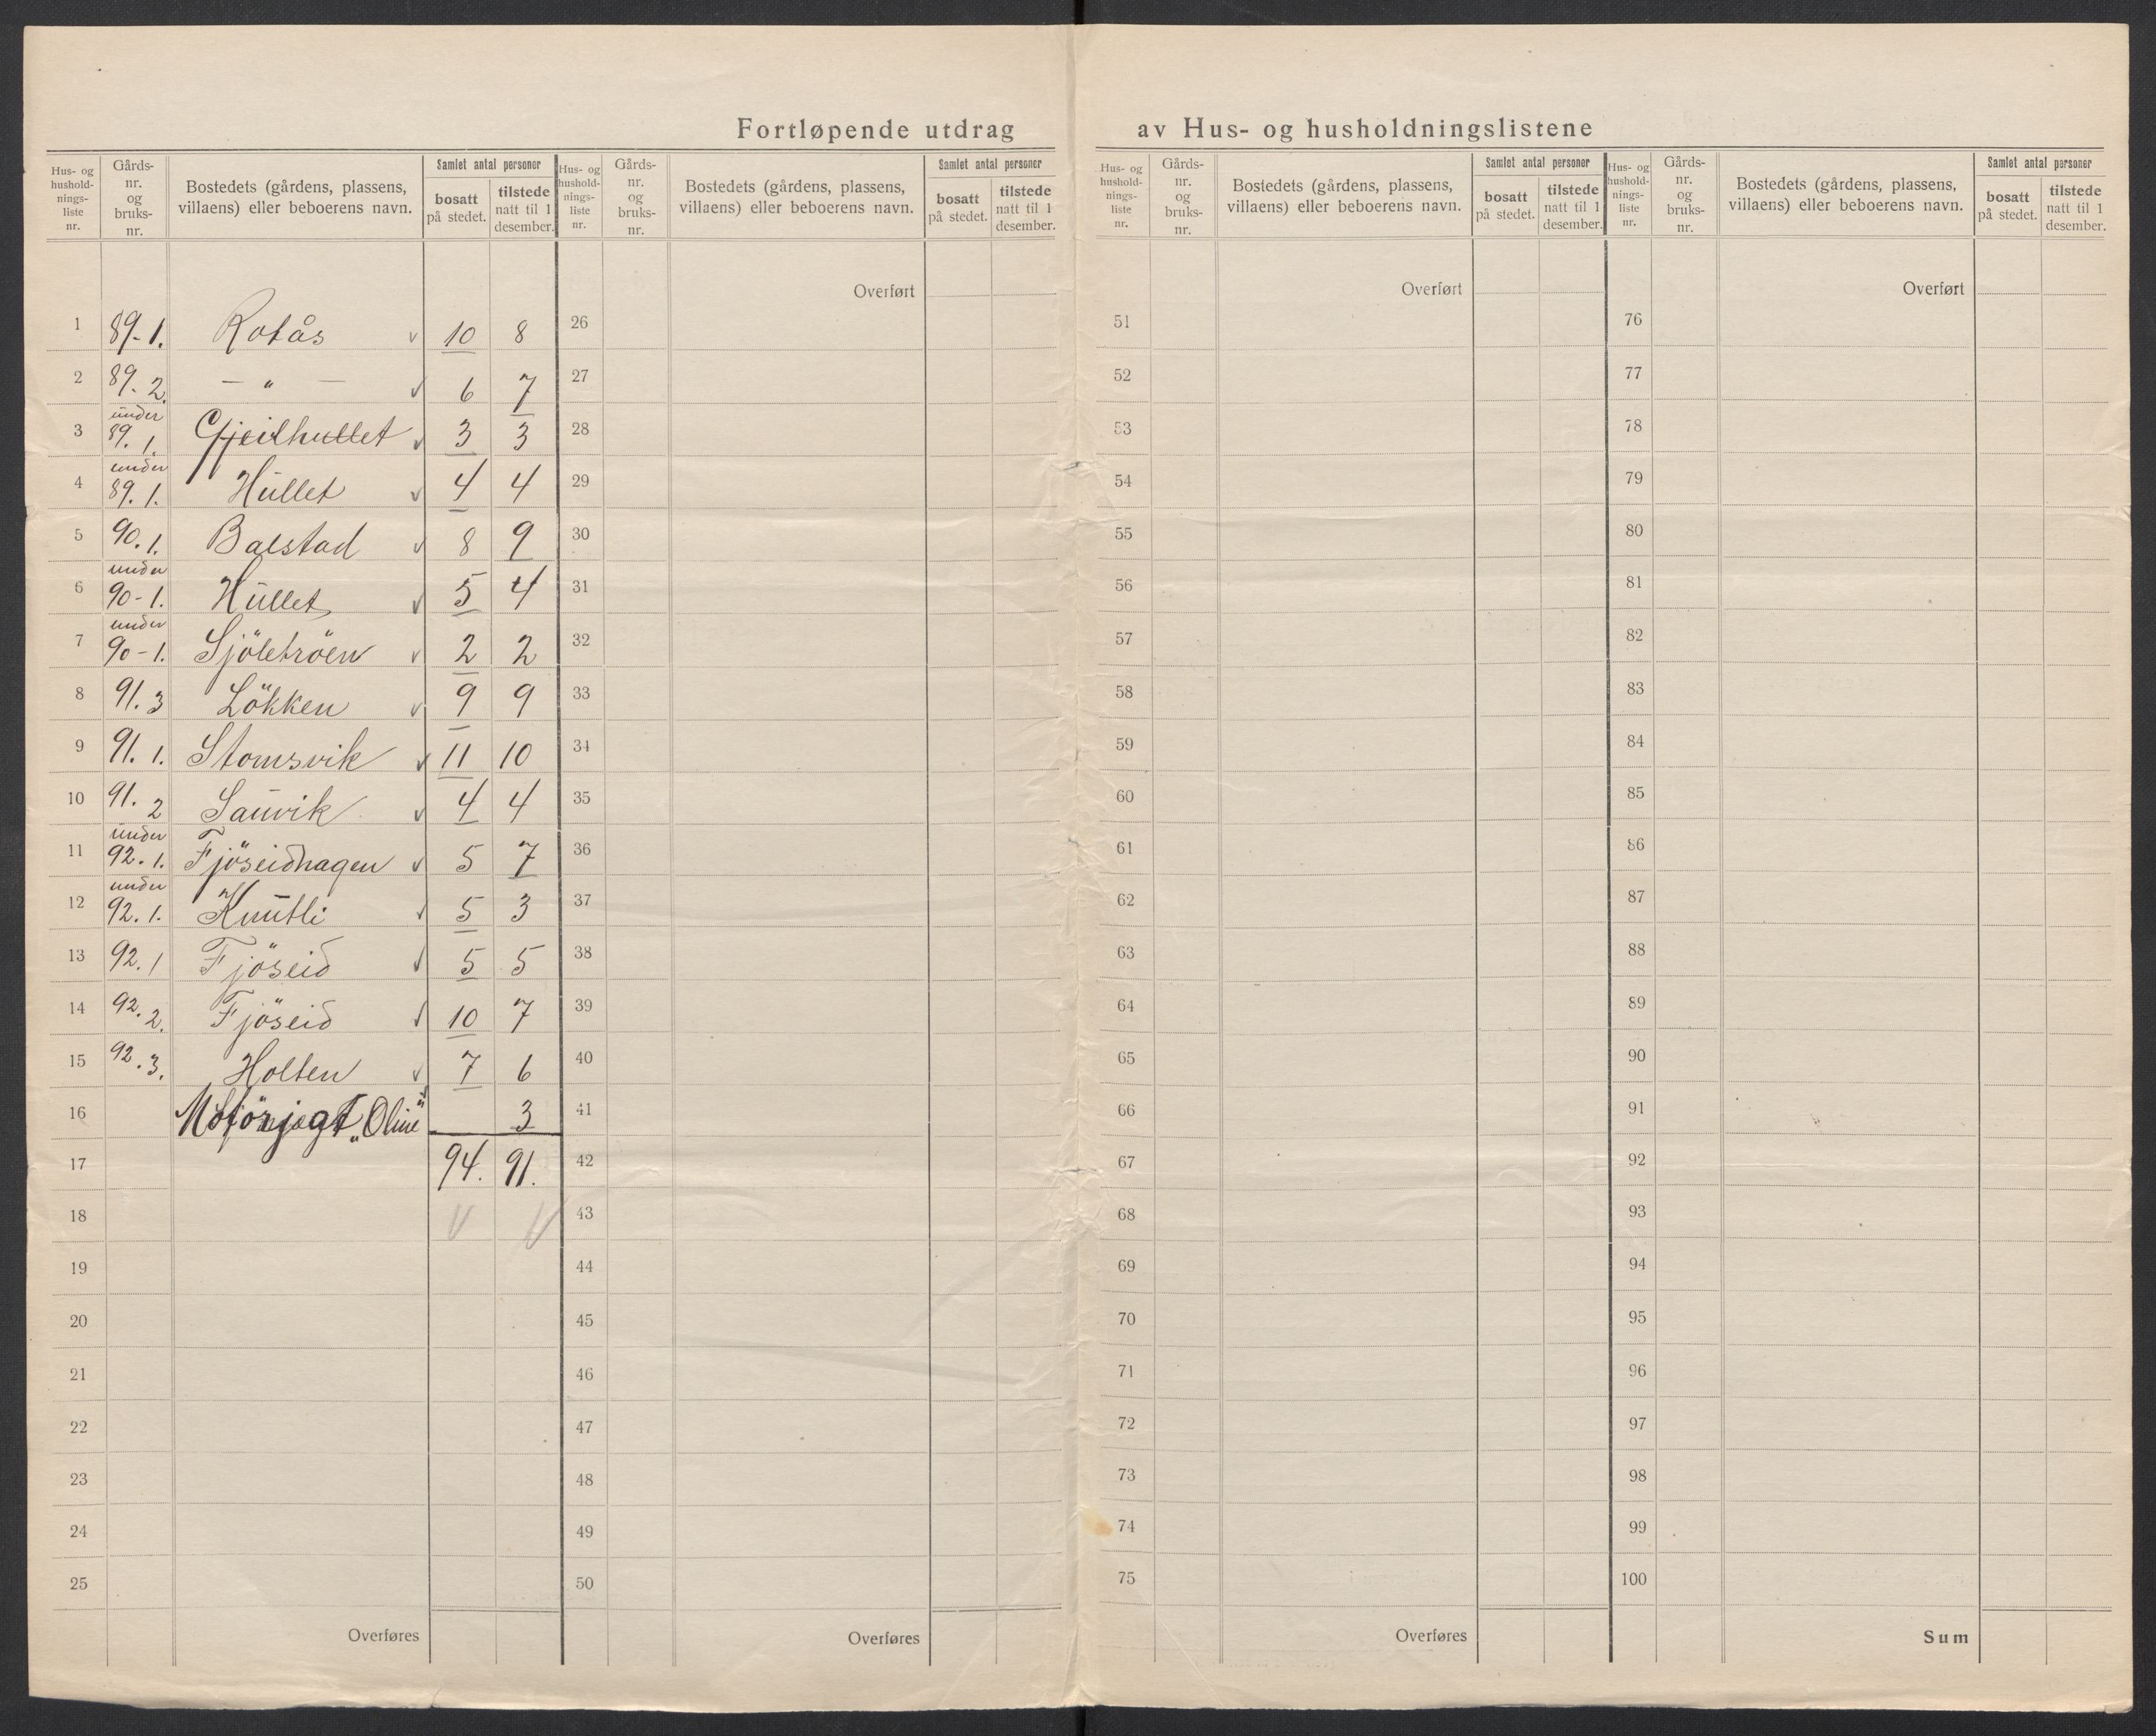 Fortløpende utdrag av Hus- og husholdningslistene
Hus- og hushold-nings-liste nr. | Gårds-nr. og bruks-nr. | Bostedets (gårdens, plassens, villaens) eller beboerens navn. | Samlet antal personer | bosatt på stedet. | tilstede natt til 1 desember.
Hus- og hushold-nings-liste nr. | Gårds-nr. og bruks-nr. | Bostedets (gårdens, plassens, villaens) eller beboerens navn. | Samlet antal personer | bosatt på stedet. | tilstede natt til 1 desember.
Hus- og hushold-nings-liste nr. | Gårds-nr. og bruks-nr. | Bostedets (gårdens, plassens, villaens) eller beboerens navn. | Samlet antal personer | bosatt på stedet. | tilstede natt til 1 desember.
Hus- og hushold-nings-liste nr. | Gårds-nr. og bruks-nr. | Bostedets (gårdens, plassens, villaens) eller beboerens navn. | Samlet antal personer | bosatt på stedet. | tilstede natt til 1 desember.
1 89-1. Rotås 10 8
2 89. 2. — " — 6 7
3 under 89. 1. Gjeilhullet 3 3
4 under 89. 1. Hullet 4 4
5 90. 1. Balstad 8 9
6 under 90-1. Hullet 5 4
7 under 90-1. Sjöletröen 2 2
8 91. 3 Lökken 9 9
9 91. 1. Stomsvik 11 10
10 91. 2 Sauvik 4 4
11 under 92. 1. Fjöseidhagen 5 7
12 under 92. 1. Knutli 5 3
13 92. 1 Fjöseid 5 5
14 92. 2. Fjöseid 10 7
15 92. 3. Holten 7 6
16 Motorjagt „Oline" 3
17 94. 91.
18
19
20
21
22
23
24
25
Overføres
Overført
26
27
28
29
30
31
32
33
34
35
36
37
38
39
40
41
42
43
44
45
46
47
48
49
50
Overføres
Overført
51
52
53
54
55
56
57
58
59
60
61
62
63
64
65
66
67
68
69
70
71
72
73
74
75
Overføres
Overført
76
77
78
79
80
81
82
83
84
85
86
87
88
89
90
91
92
93
94
95
96
97
98
99
100
Sum